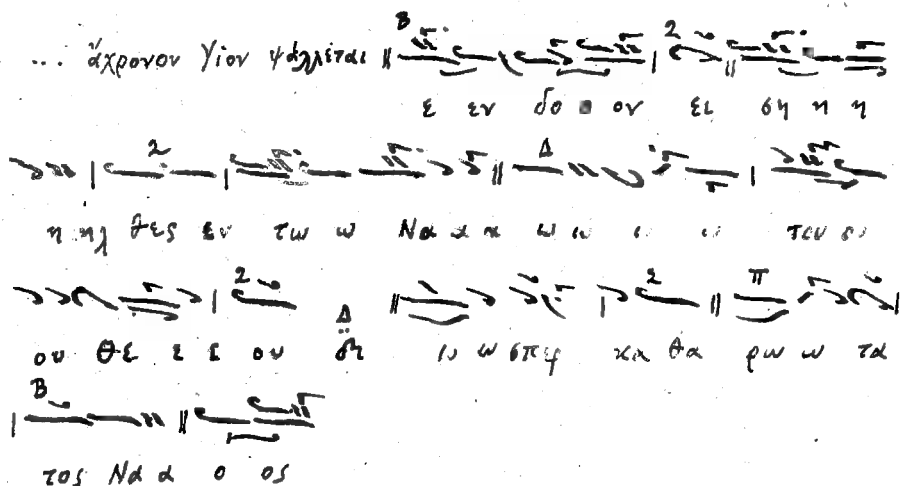 ... ἄχρονον Υἱὸν ψάλλεται
ε εν δο ον ει ση η η
η ηλ θες εν τω ω Να α α ω ω ω ω του ου
ου θε ε ε ου δι ω ω σπερ κα θα ρω ω τα
τος Να α ο ος